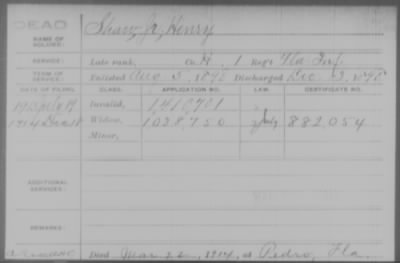 DEAD
NAME OF SOLDIER: Shaw, Jr, Henry
SERVICE: Late rank, Co. H, 1 Reg't Fla Inf.
TERM OF SERVICE: Enlisted Aug 5, 1898 Discharged Dec. 3, 1898
DATE OF FILING. CLASS. APPLICATION NO. LAW. CERTIFICATE NO.
1913 July 19 Invalid, 1,410,701
1914 Widow, 1028,750 882,054
Minor,
ADDITIONAL SERVICES:
REMARKS:
Died Mar 22, 1914, at Pedro, Fla